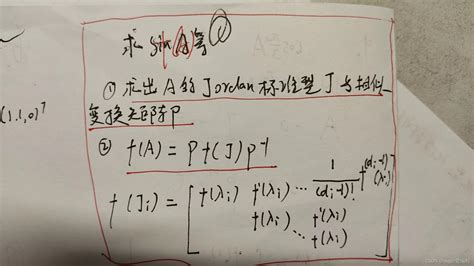 求 sin A 等
(1,1,0)ᵀ
① 求出 A 的 Jordan 标准型 J 与相似
变换矩阵 P
② f(A) = P f(J) P⁻¹
f(Jᵢ) = [ f(λᵢ) f'(λᵢ) ⋯ 1/(dᵢ-1)! f^(dᵢ-1)(λᵢ)
f(λᵢ) ⋯ f'(λᵢ)
f(λᵢ)